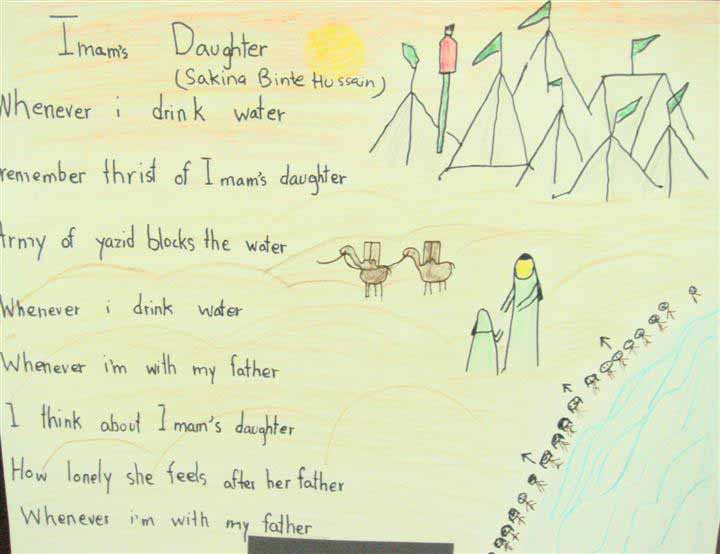 Imam's Daughter
(Sakina Binte Hussain)
Whenever i drink water
remember thrist of Imam's daughter
Army of yazid blocks the water
Whenever i drink water
Whenever i'm with my father
I think about Imam's daughter
How lonely she feels after her father
Whenever i'm with my father